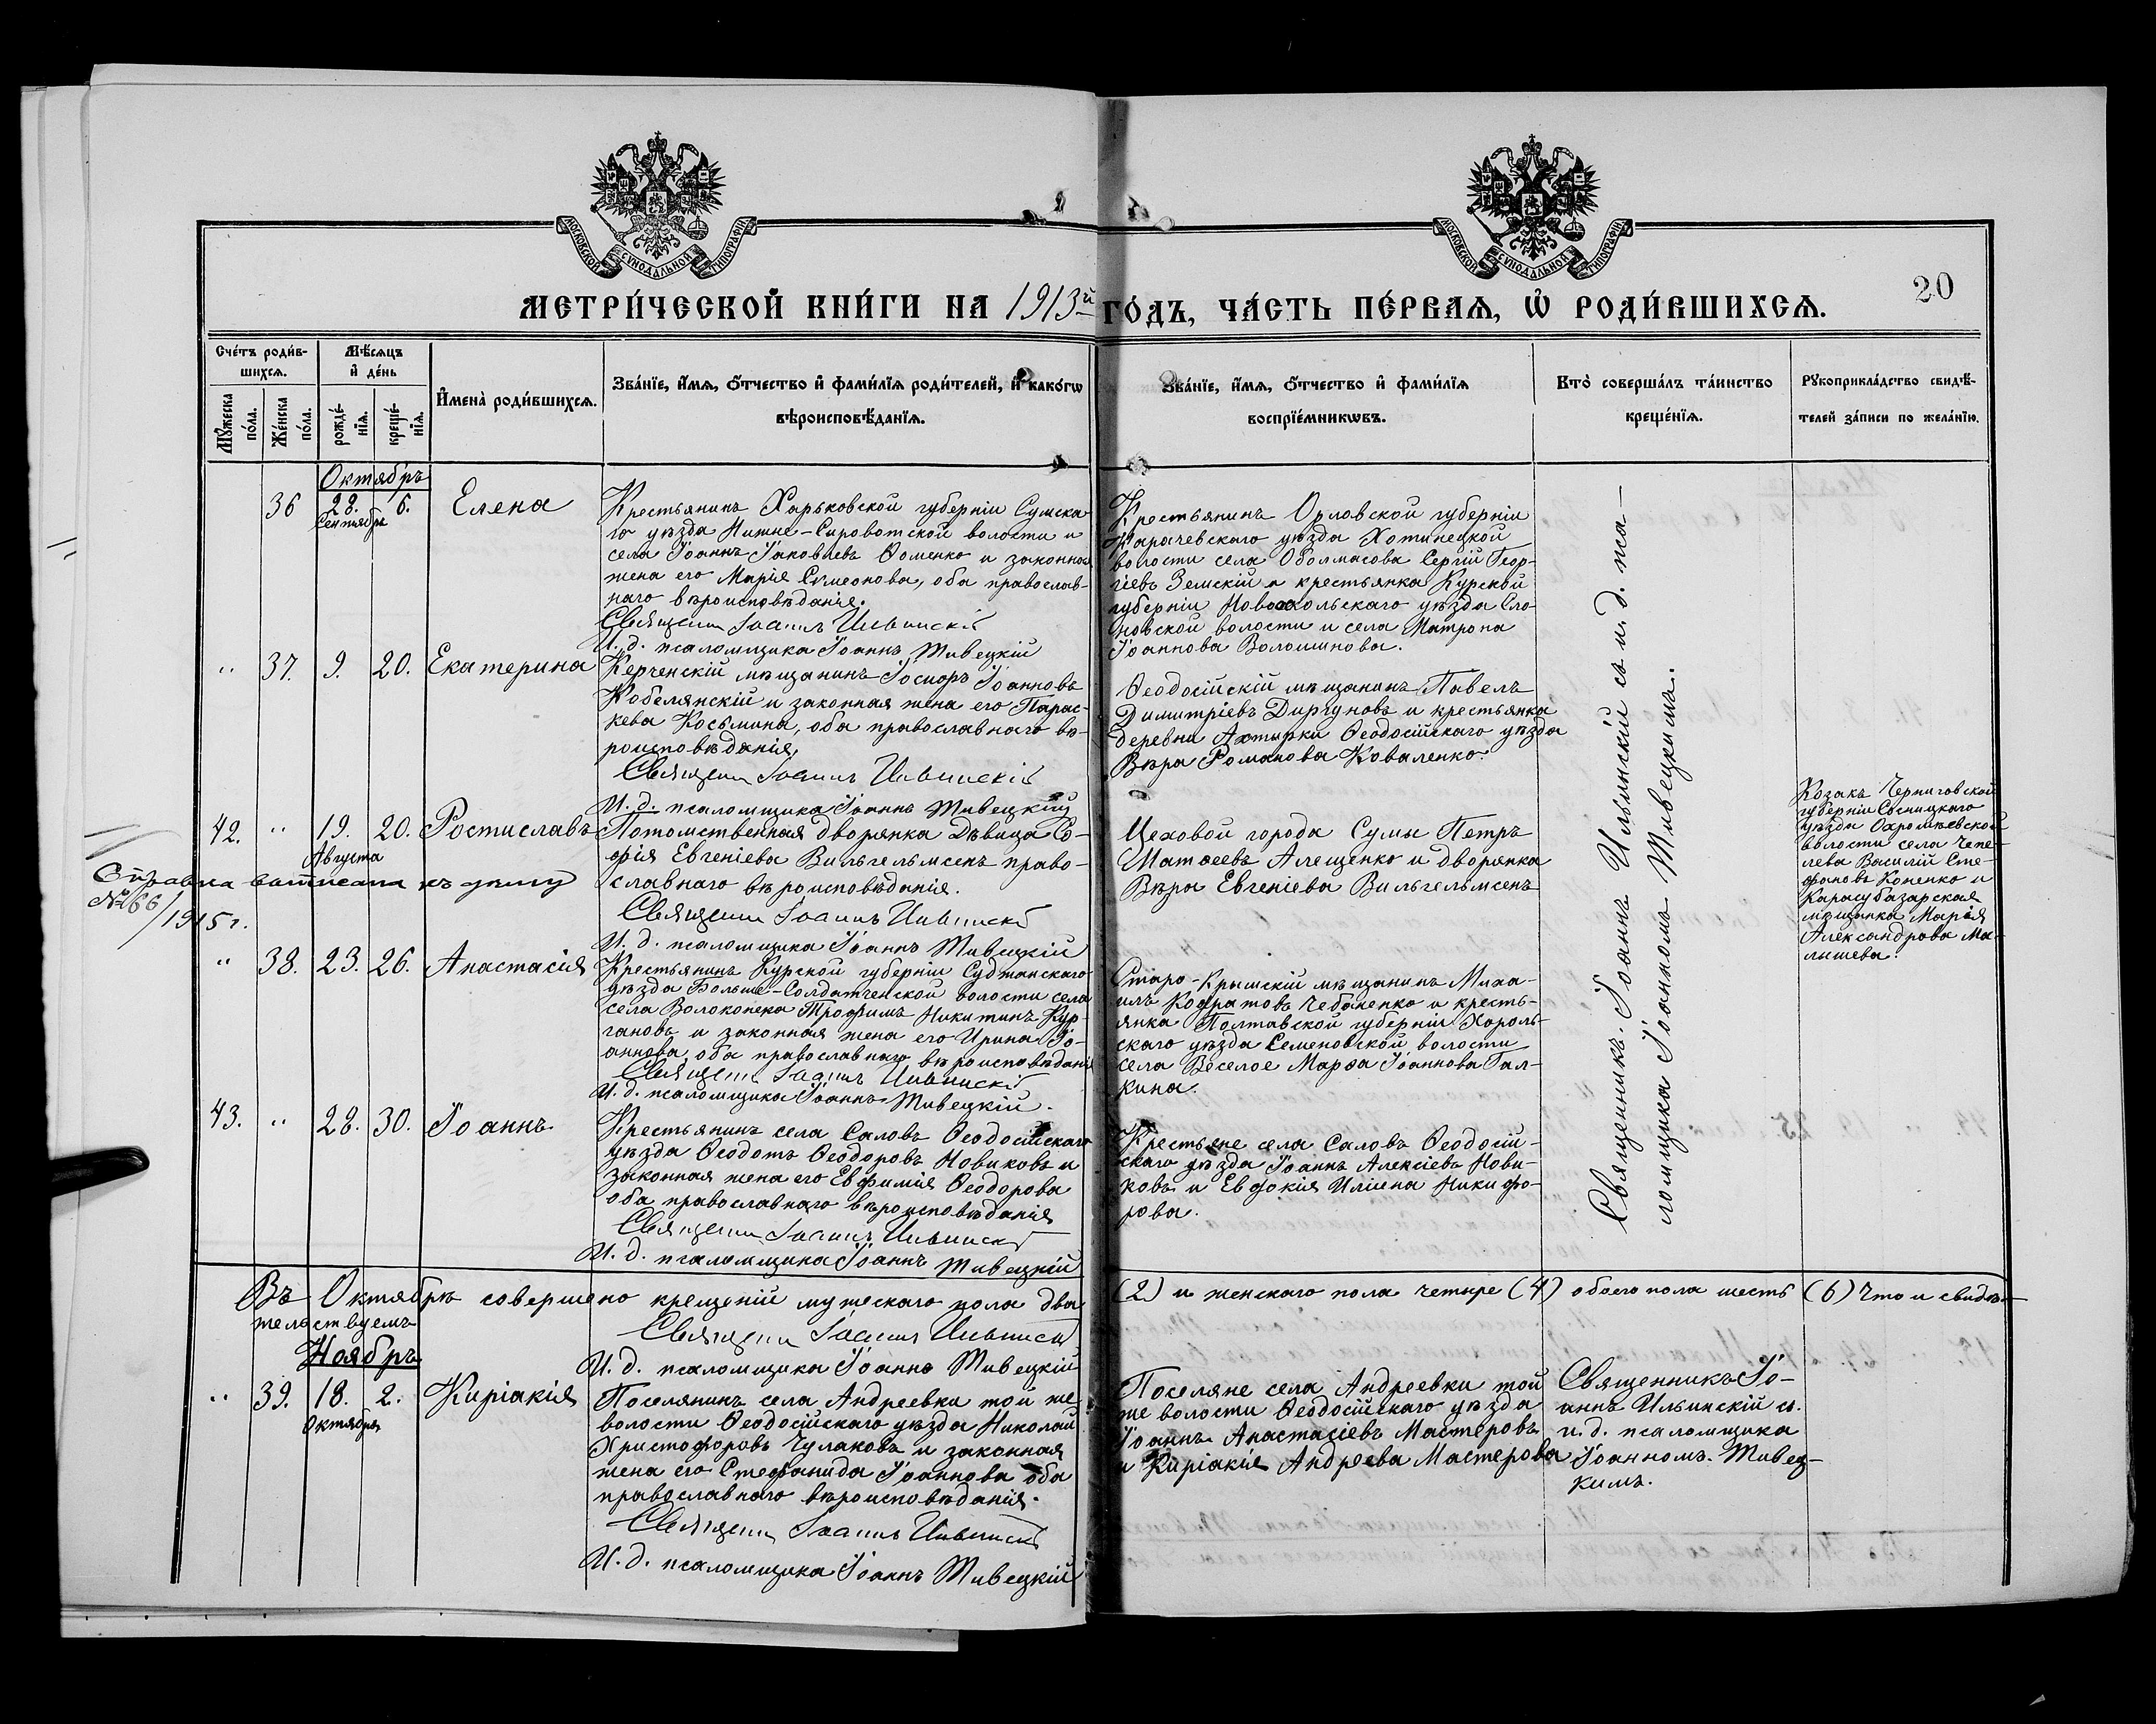 МОСКОВСКОЙ СѴНОДАЛЬНОЙ ТИПОГРАФІИ
МОСКОВСКОЙ СѴНОДАЛЬНОЙ ТИПОГРАФІИ
20
МЕТРИ́ЧЕСКОЙ КНИ́ГИ НА 1913й ГО́ДЪ, ЧА́СТЬ ПЕ́РВАѦ, Ѡ РОДИ́ВШИХСѦ.
Сче́тъ роди́в-
шихсѧ.
Мѣ́сѧцъ
и де́нь
Мꙋ́жеска
по́ла.
Же́нска
по́ла.
рожде́-
нїѧ.
креще́-
нїѧ.
И҆мена̀ роди́вшихсѧ.
Зва́нїе, и҆́мѧ, ѻ҆́тчество и҆ фами́лїѧ роди́телей, и҆ како́гѡ
вѣроисповѣ́данїѧ.
Зва́нїе, и҆́мѧ, ѻ҆́тчество и҆ фами́лїѧ
воспрїе́мникѡвъ.
Кто̀ соверша́лъ та́инство
креще́нїѧ.
Рꙋкоприкла́дство свидѣ́-
телей за́писи по жела́нїю.
Октябрь
36 28. 6. Елена
Сентября
Крестьянинъ Харьковской губерніи Сумска-
го уѣзда Нижне-Сыроватской волости и
села Іоаннъ Іаковлевъ Ѳоменко и законная
жена его Марія Симеонова, оба православ-
наго вѣроисповѣданія.
Священн Іоаннъ Ильинскій
И. д. псаломщика Іоаннъ Живецкій
Крестьянинъ Орловской губерніи
Карачевскаго уѣзда Хотинецкой
волости села Оболмасова Сергій Геор-
гіевъ Земскій и крестьянка Курской
губерніи Новооскольскаго уѣзда Сло-
новской волости и села Матрона
Іоаннова Волошинова.
" 37. 9. 20. Екатерина
Керченскій мѣщанинъ Іосифъ Іоанновъ
Кобелянскій и законная жена его Парас-
кева Косьмина, оба православнаго вѣ-
роисповѣданія
Священн Іоаннъ Ильинскій
И. д. псаломщика Іоаннъ Живецкій
Ѳеодосійскій мѣщанинъ Павелъ
Димитріевъ Диргуновъ и крестьянка
деревни Ахтырки Ѳеодосійскаго уѣзда
Вѣра Романова Коваленко.
42. " 19. 20. Ростиславъ
Августа
Справка выписана къ дѣлу
№266
/1915г.
Потомственная дворянка Дѣвица Со-
фія Евгеніева Вильгельмсенъ право-
славнаго вѣроисповѣданія.
Священн Іоаннъ Ильинскій
И. д. псаломщика Іоаннъ Живецкій
Цеховой города Сумы Петръ
Матѳеевъ Алещенко и дворянка
Вѣра Евгеніева Вильгельмсенъ
Козакъ Черниговской
губерніи Сосницкаго
уѣзда Охромѣевской
волости села Чепе-
лева Василій Сте-
фановъ Коненко и
Карасубазарская
мѣщанка Марія
Александрова Ма-
лышева.
" 38. 23. 26. Анастасія
Крестьянинъ Курской губерніи Суджанскаго
уѣзда Больше-Солдатченской волости села
села Волоконска Трофимъ Никитинъ Кур-
гановъ и законная жена его Ирина Іо-
аннова, оба православнаго вѣроисповѣданія
Священн Іоаннъ Ильинскій
И. д. псаломщика Іоаннъ Живецкій.
Старо-Крымскій мѣщанинъ Миха-
илъ Кодратовъ Чебаненко и кресть-
янка Полтавской губерніи Хороль-
скаго уѣзда Семеновской волости
села Веселое Марѳа Іоаннова Гал-
кина.
43. " 28. 30. Іоаннъ
Крестьянинъ села Саловъ Ѳеодосійскаго
уѣзда Ѳеодотъ Ѳеодоровъ Новиковъ и
законная жена его Евфимія Ѳеодорова
оба православнаго вѣроисповѣданія
Священн Іоаннъ Ильинскій
И. д. псаломщика Іоаннъ Живецкій
Крестьяне села Саловъ Ѳеодосій-
скаго уѣзда Іоаннъ Алексіевъ Нови-
ковъ и Евдокія Иліина Никифо-
рова.
Священникъ Іоаннъ Ильинскій съ и. д. пса-
ломщика Іоанномъ Живецкимъ.
Въ Октябрѣ совершено крещеній мужескаго пола два (2) и женскаго пола четыре (4) обоего пола шесть (6) Что и свидѣ-
тельствуемъ
Священн Іоаннъ Ильинскій
И. д. псаломщика Іоаннъ Живецкій
Ноябрь
" 39. 18. 2. Киріакія
Октября
Поселянинъ села Андреевки той же
волости Ѳеодосійскаго уѣзда Николай
Христофоровъ Чулаковъ и законная
жена его Стефанида Іоаннова оба
православнаго вѣроисповѣданія.
Священн Іоаннъ Ильинскій
И. д. псаломщика Іоаннъ Живецкій
Поселяне села Андреевки той
же волости Ѳеодосійскаго уѣзда
Іоаннъ Анастасіевъ Мастеровъ
и Киріакія Андреева Мастерова
Священникъ Іо-
аннъ Ильинскій съ
и. д. псаломщика
Іоанномъ Живец-
кимъ.